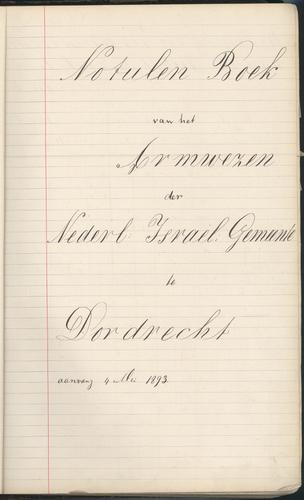 Notulen Boek
van het
Armwezen
der
Nederl. Israel. Gemeente
te
Dordrecht
aanvang 4 Mei 1893.